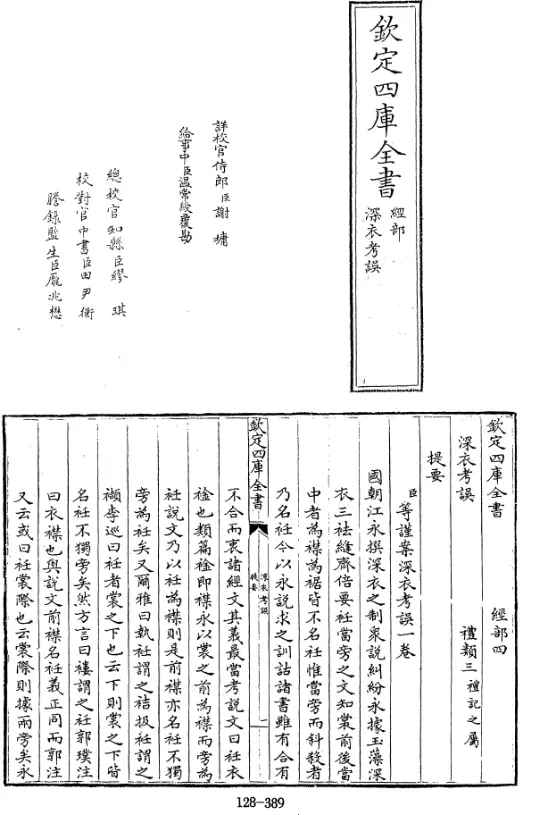 欽定四庫全書
經部
深衣考誤
詳校官侍郎臣謝墉
給事中臣溫常綬覆勘
總校官知縣臣繆琪
校對官中書臣田尹衡
謄錄監生臣龎兆懋
欽定四庫全書 經部四
深衣考誤 禮類三禮記之屬
提要
臣等謹案深衣考誤一卷
國朝江永撰深衣之制衆說糾紛永據玉藻深
衣三袪縫齊倍要衽當旁之文知裳前後當
中者為襟為裾皆不名衽惟當旁而斜殺者
乃名衽今以永說求之訓詁諸書雖有合有
欽定四庫全書
深衣考誤
提要
一
不合而衷諸經文其義最當考說文曰衽衣
䘳也類篇䘳即襟永以裳之前為襟而旁為
衽說文乃以衽為襟則是前襟亦名衽不獨
旁為衽矣又爾雅曰執衽謂之袺扱衽謂之
襭李巡曰衽者裳之下也云下則裳之下皆
名衽不獨旁矣然方言曰褸謂之衽郭璞注
曰衣襟也與說文前襟名衽義正同而郭注
又云或曰衽裳際也云裳際則據兩旁矣永
128-389